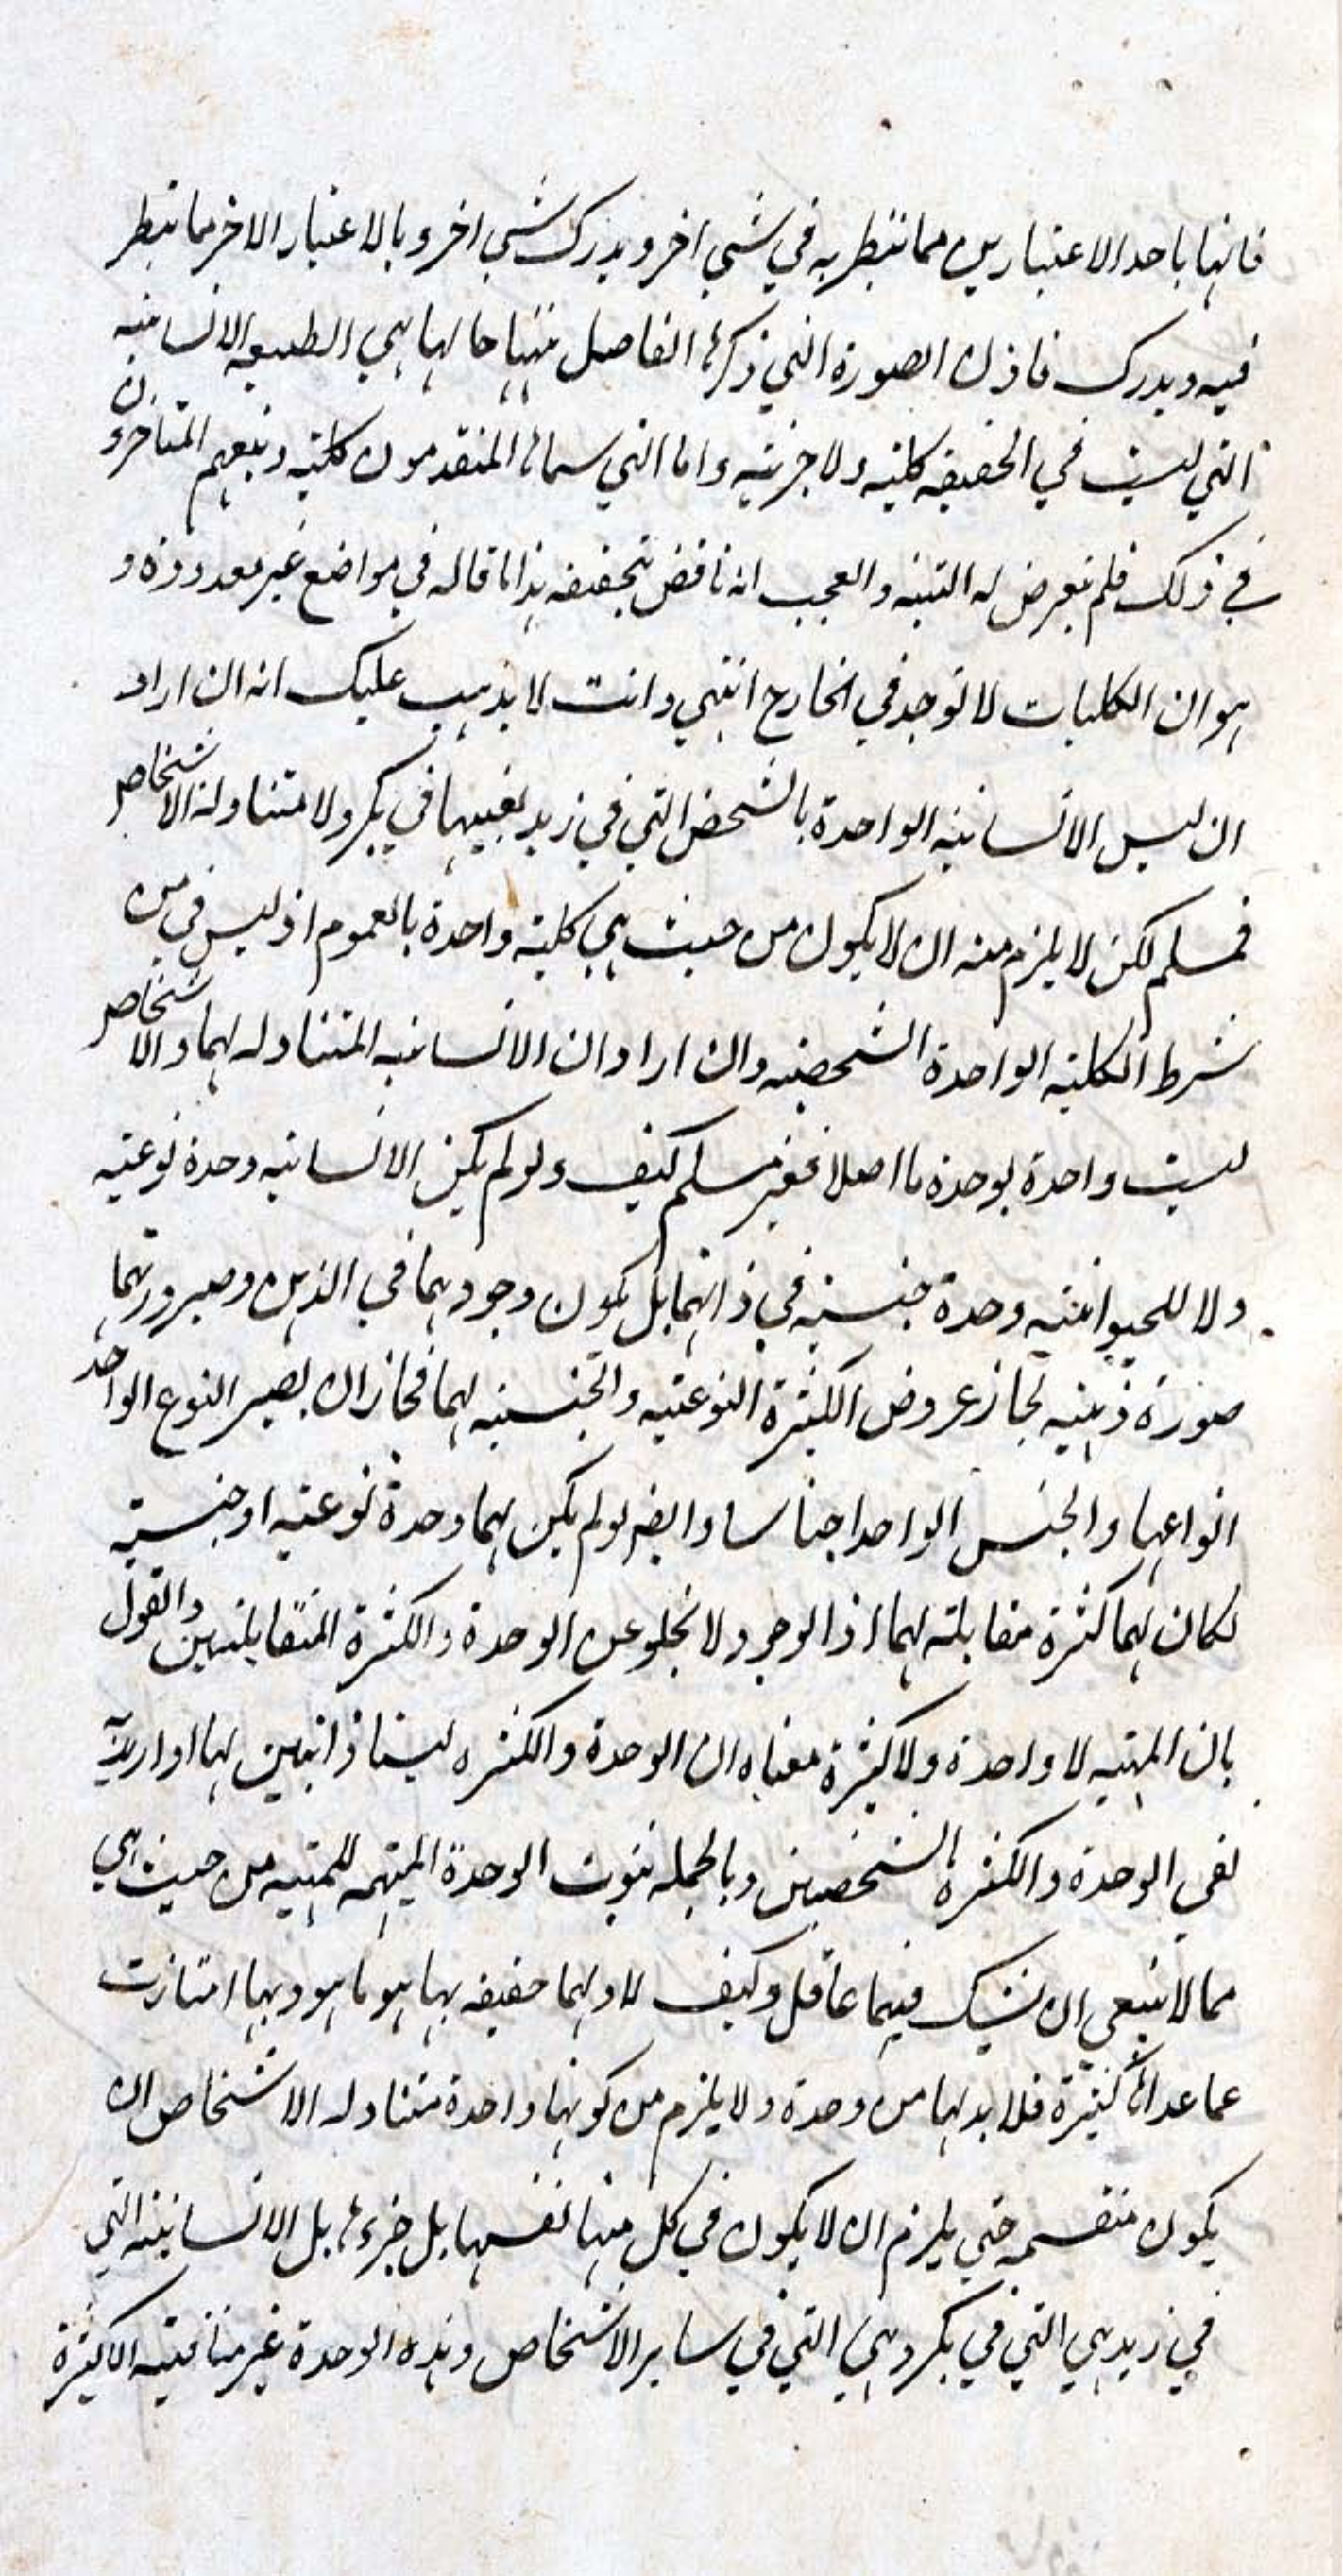 فانها باحد الاعتبارين مما ينظر به في شيئ اخر ويدرك شيئ اخر وبالاعتبار الاخر مما ينظر
فيه ويدرك فاذن الصورة التي ذكرها الفاضل منتها حالها هي الطبيعه الانسانيه
التي ليست في الحقيقه كليه ولا جزئيه واما التي سماها المتقدمون كليه وتبعهم المتاخرون
في ذلك فلم يعرض له التنبه والعجب انه ناقض بتحقيقه هذا ما قاله في مواضع غير معدوده و
هو ان الكليات لا توجد في الخارج انتهي وانت لا يذهب عليك انه ان اراد
ان ليس الانسانيه الواحدة بالشخص التي في زيد بعينها في بكر ولا متناولة الاشخاص
فمسلم لكن لا يلزم منه ان لا يكون من حيث هي كليه واحدة بالعموم اذ ليس في من
شرط الكليه الواحدة الشخصيه وان اراد ان الانسانيه المتناوله لهما والاشخاص
ليست واحدة بوحدة ما اصلا فغير مسلم كيف ولو لم يكن الانسانيه وحدة نوعيه
ولا للحيوانيه وحدة جنسيه في ذاتهما بل يكون وجودهما في الذهن وصيرورتهما
صورة ذهنيه لجاز عروض الكثرة النوعيه والجنسيه لهما فجاز ان يصير النوع الواحد
انواعها والجنس الواحد اجناسا وايضا لو لم يكن لهما وحدة نوعيه او جنسيه
لكان لهما كثرة مقابلته لهما اذ الوجود لا يخلو عن الوحدة والكثرة المتقابلتين والقول
بان المهيه لا واحدة ولا كثيرة معناه ان الوحدة والكثره ليستا ذاتيتين لها او اريد
نفي الوحدة والكثره الشخصيتين وبالجمله ثبوت الوحدة المبهمه للمهيه من حيث هي
مما لا ينبغي ان يشك فيهما عاقل وكيف لا ولهما حقيقه بها هو ما هو وبها امتازت
عما عداها كثيرة فلا بد لها من وحدة ولا يلزم من كونها واحدة متناوله الاشخاص ان
يكون منقسمه حتي يلزم ان لا يكون في كل منها نفسها بل جزءها بل الانسانيه التي
في زيد هي التي في بكر وهي التي في ساير الاشخاص وهذه الوحدة غير منافيه الكثرة